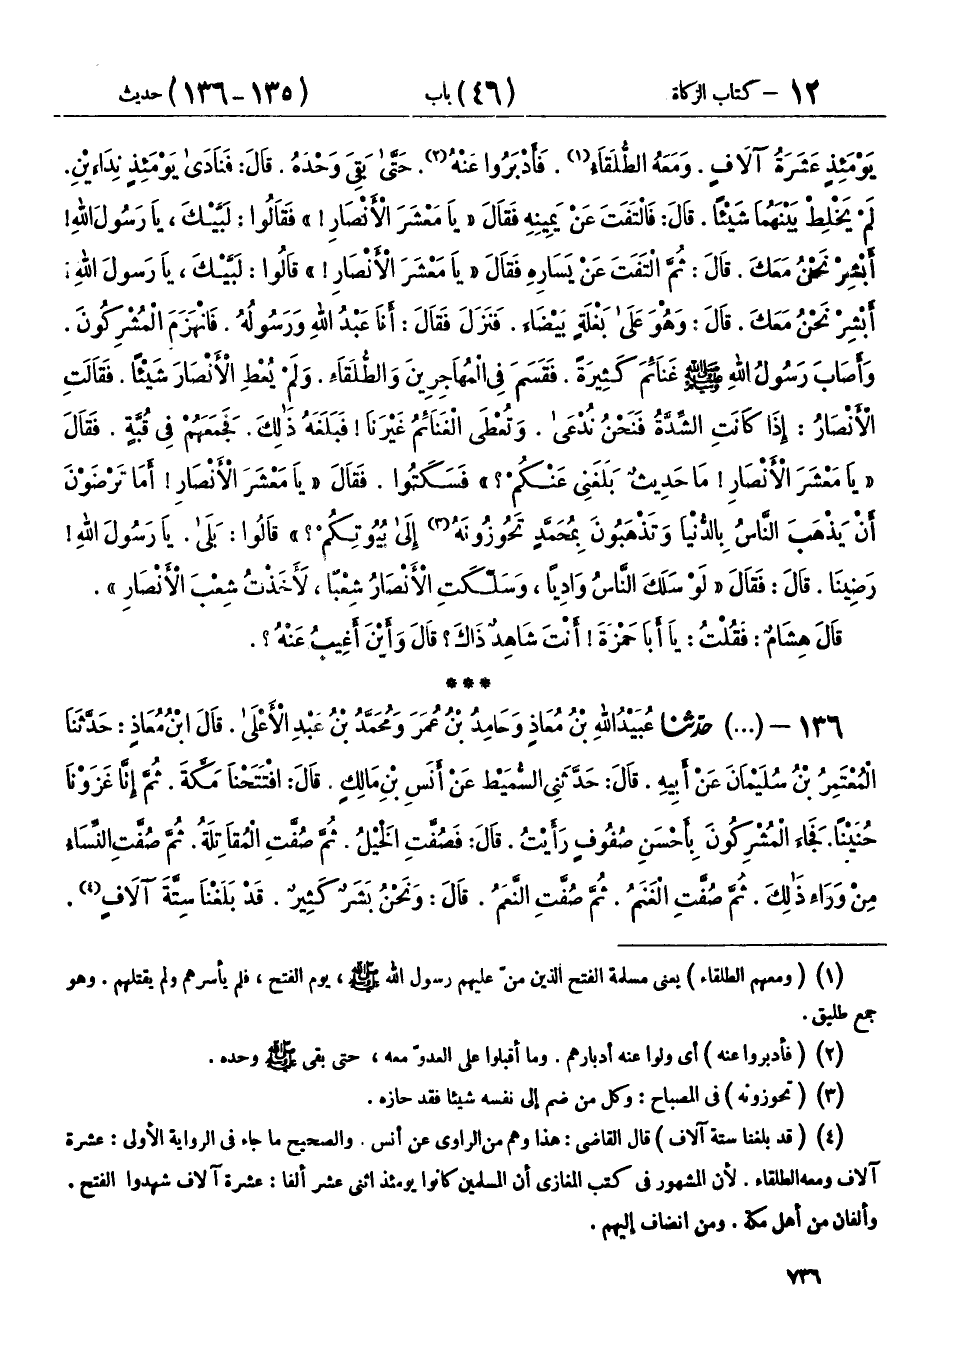 ١٢ – كتاب الزكاة (٤٦) باب (١٣٥–١٣٦) حديث
يَوْمَئِذٍ عَشَرَةُ آلَافٍ . وَمَعَهُ الطُّلَقَاءُ(١) . فَأَدْبَرُوا عَنْهُ(٢). حَتَّىٰ بَقِيَ وَحْدَهُ . قَالَ: فَنَادَىٰ يَوْمَئِذٍ نِدَاءَيْنِ.
لَمْ يَخْلِطْ بَيْنَهُمَا شَيْئًا . قَالَ: فَالْتَفَتَ عَنْ يَمِينِهِ فَقَالَ « يَا مَعْشَرَ الْأَنْصَارِ ! » فَقَالُوا : لَبَّيْكَ ، يَا رَسُولَ اللهِ!
أَبْشِرْ نَحْنُ مَعَكَ . قَالَ : ثُمَّ الْتَفَتَ عَنْ يَسَارِهِ فَقَالَ « يَا مَعْشَرَ الْأَنْصَارِ ! » قَالُوا : لَبَّيْكَ ، يَا رَسُولَ اللهِ !
أَبْشِرْ نَحْنُ مَعَكَ . قَالَ : وَهُوَ عَلَىٰ بَغْلَةٍ بَيْضَاءَ . فَنَزَلَ فَقَالَ : أَنَا عَبْدُ اللهِ وَرَسُولُهُ . فَانْهَزَمَ الْمُشْرِكُونَ .
وَأَصَابَ رَسُولُ اللهِ ﷺ غَنَائِمَ كَثِيرَةً . فَقَسَمَ فِي الْمُهَاجِرِينَ وَالطُّلَقَاءِ . وَلَمْ يُعْطِ الْأَنْصَارَ شَيْئًا . فَقَالَتِ
الْأَنْصَارُ : إِذَا كَانَتِ الشِّدَّةُ فَنَحْنُ نُدْعَىٰ . وَتُعْطَى الْغَنَائِمُ غَيْرَنَا ! فَبَلَغَهُ ذَٰلِكَ . فَجَمَعَهُمْ فِي قُبَّةٍ . فَقَالَ
« يَا مَعْشَرَ الْأَنْصَارِ ! مَا حَدِيثٌ بَلَغَنِي عَنْكُمْ ؟ » فَسَكَتُوا . فَقَالَ « يَا مَعْشَرَ الْأَنْصَارِ ! أَمَا تَرْضَوْنَ
أَنْ يَذْهَبَ النَّاسُ بِالدُّنْيَا وَتَذْهَبُونَ بِمُحَمَّدٍ تَحُوزُونَهُ(٣) إِلَىٰ بُيُوتِكُمْ ؟ » قَالُوا : بَلَىٰ . يَا رَسُولَ اللهِ !
رَضِينَا . قَالَ : فَقَالَ « لَوْ سَلَكَ النَّاسُ وَادِيًا ، وَسَلَكَتِ الْأَنْصَارُ شِعْبًا ، لَأَخَذْتُ شِعْبَ الْأَنْصَارِ » .
قَالَ هِشَامٌ : فَقُلْتُ : يَا أَبَا حَمْزَةَ ! أَنْتَ شَاهِدٌ ذَاكَ ؟ قَالَ وَأَيْنَ أَغِيبُ عَنْهُ ؟ .
***
١٣٦ – (...) حَدَّثَنَا عُبَيْدُ اللهِ بْنُ مُعَاذٍ وَحَامِدُ بْنُ عُمَرَ وَمُحَمَّدُ بْنُ عَبْدِ الْأَعْلَىٰ . قَالَ ابْنُ مُعَاذٍ : حَدَّثَنَا
الْمُعْتَمِرُ بْنُ سُلَيْمَانَ عَنْ أَبِيهِ . قَالَ: حَدَّثَنِي السُّمَيْطُ عَنْ أَنَسِ بْنِ مَالِكٍ . قَالَ: افْتَتَحْنَا مَكَّةَ . ثُمَّ إِنَّا غَزَوْنَا
حُنَيْنًا. فَجَاءَ الْمُشْرِكُونَ بِأَحْسَنِ صُفُوفٍ رَأَيْتُ . قَالَ: فَصُفَّتِ الْخَيْلُ . ثُمَّ صُفَّتِ الْمُقَاتِلَةُ . ثُمَّ صُفَّتِ النِّسَاءُ
مِنْ وَرَاءِ ذَٰلِكَ . ثُمَّ صُفَّتِ الْغَنَمُ . ثُمَّ صُفَّتِ النَّعَمُ . قَالَ : وَنَحْنُ بَشَرٌ كَثِيرٌ . قَدْ بَلَغْنَا سِتَّةَ آلَافٍ(٤) .
(١) ( ومعهم الطلقاء ) يعنى مسلمة الفتح الذين منّ عليهم رسول الله ﷺ ، يوم الفتح ، فلم يأسرهم ولم يقتلهم . وهو
جمع طليق .
(٢) ( فأدبروا عنه ) أى ولوا عنه أدبارهم . وما أقبلوا على العدوّ معه ، حتى بقى ﷺ وحده .
(٣) ( تحوزونه ) فى المصباح : وكل من ضم إلى نفسه شيئا فقد حازه .
(٤) ( قد بلغنا ستة آلاف ) قال القاضى : هذا وهم من الراوى عن أنس . والصحيح ما جاء فى الرواية الأولى : عشرة
آلاف ومعه الطلقاء . لأن المشهور فى كتب المغازى أن المسلمين كانوا يومئذ اثنى عشر ألفا : عشرة آلاف شهدوا الفتح .
وألفان من أهل مكة . ومن انضاف إليهم .
٧٣٦